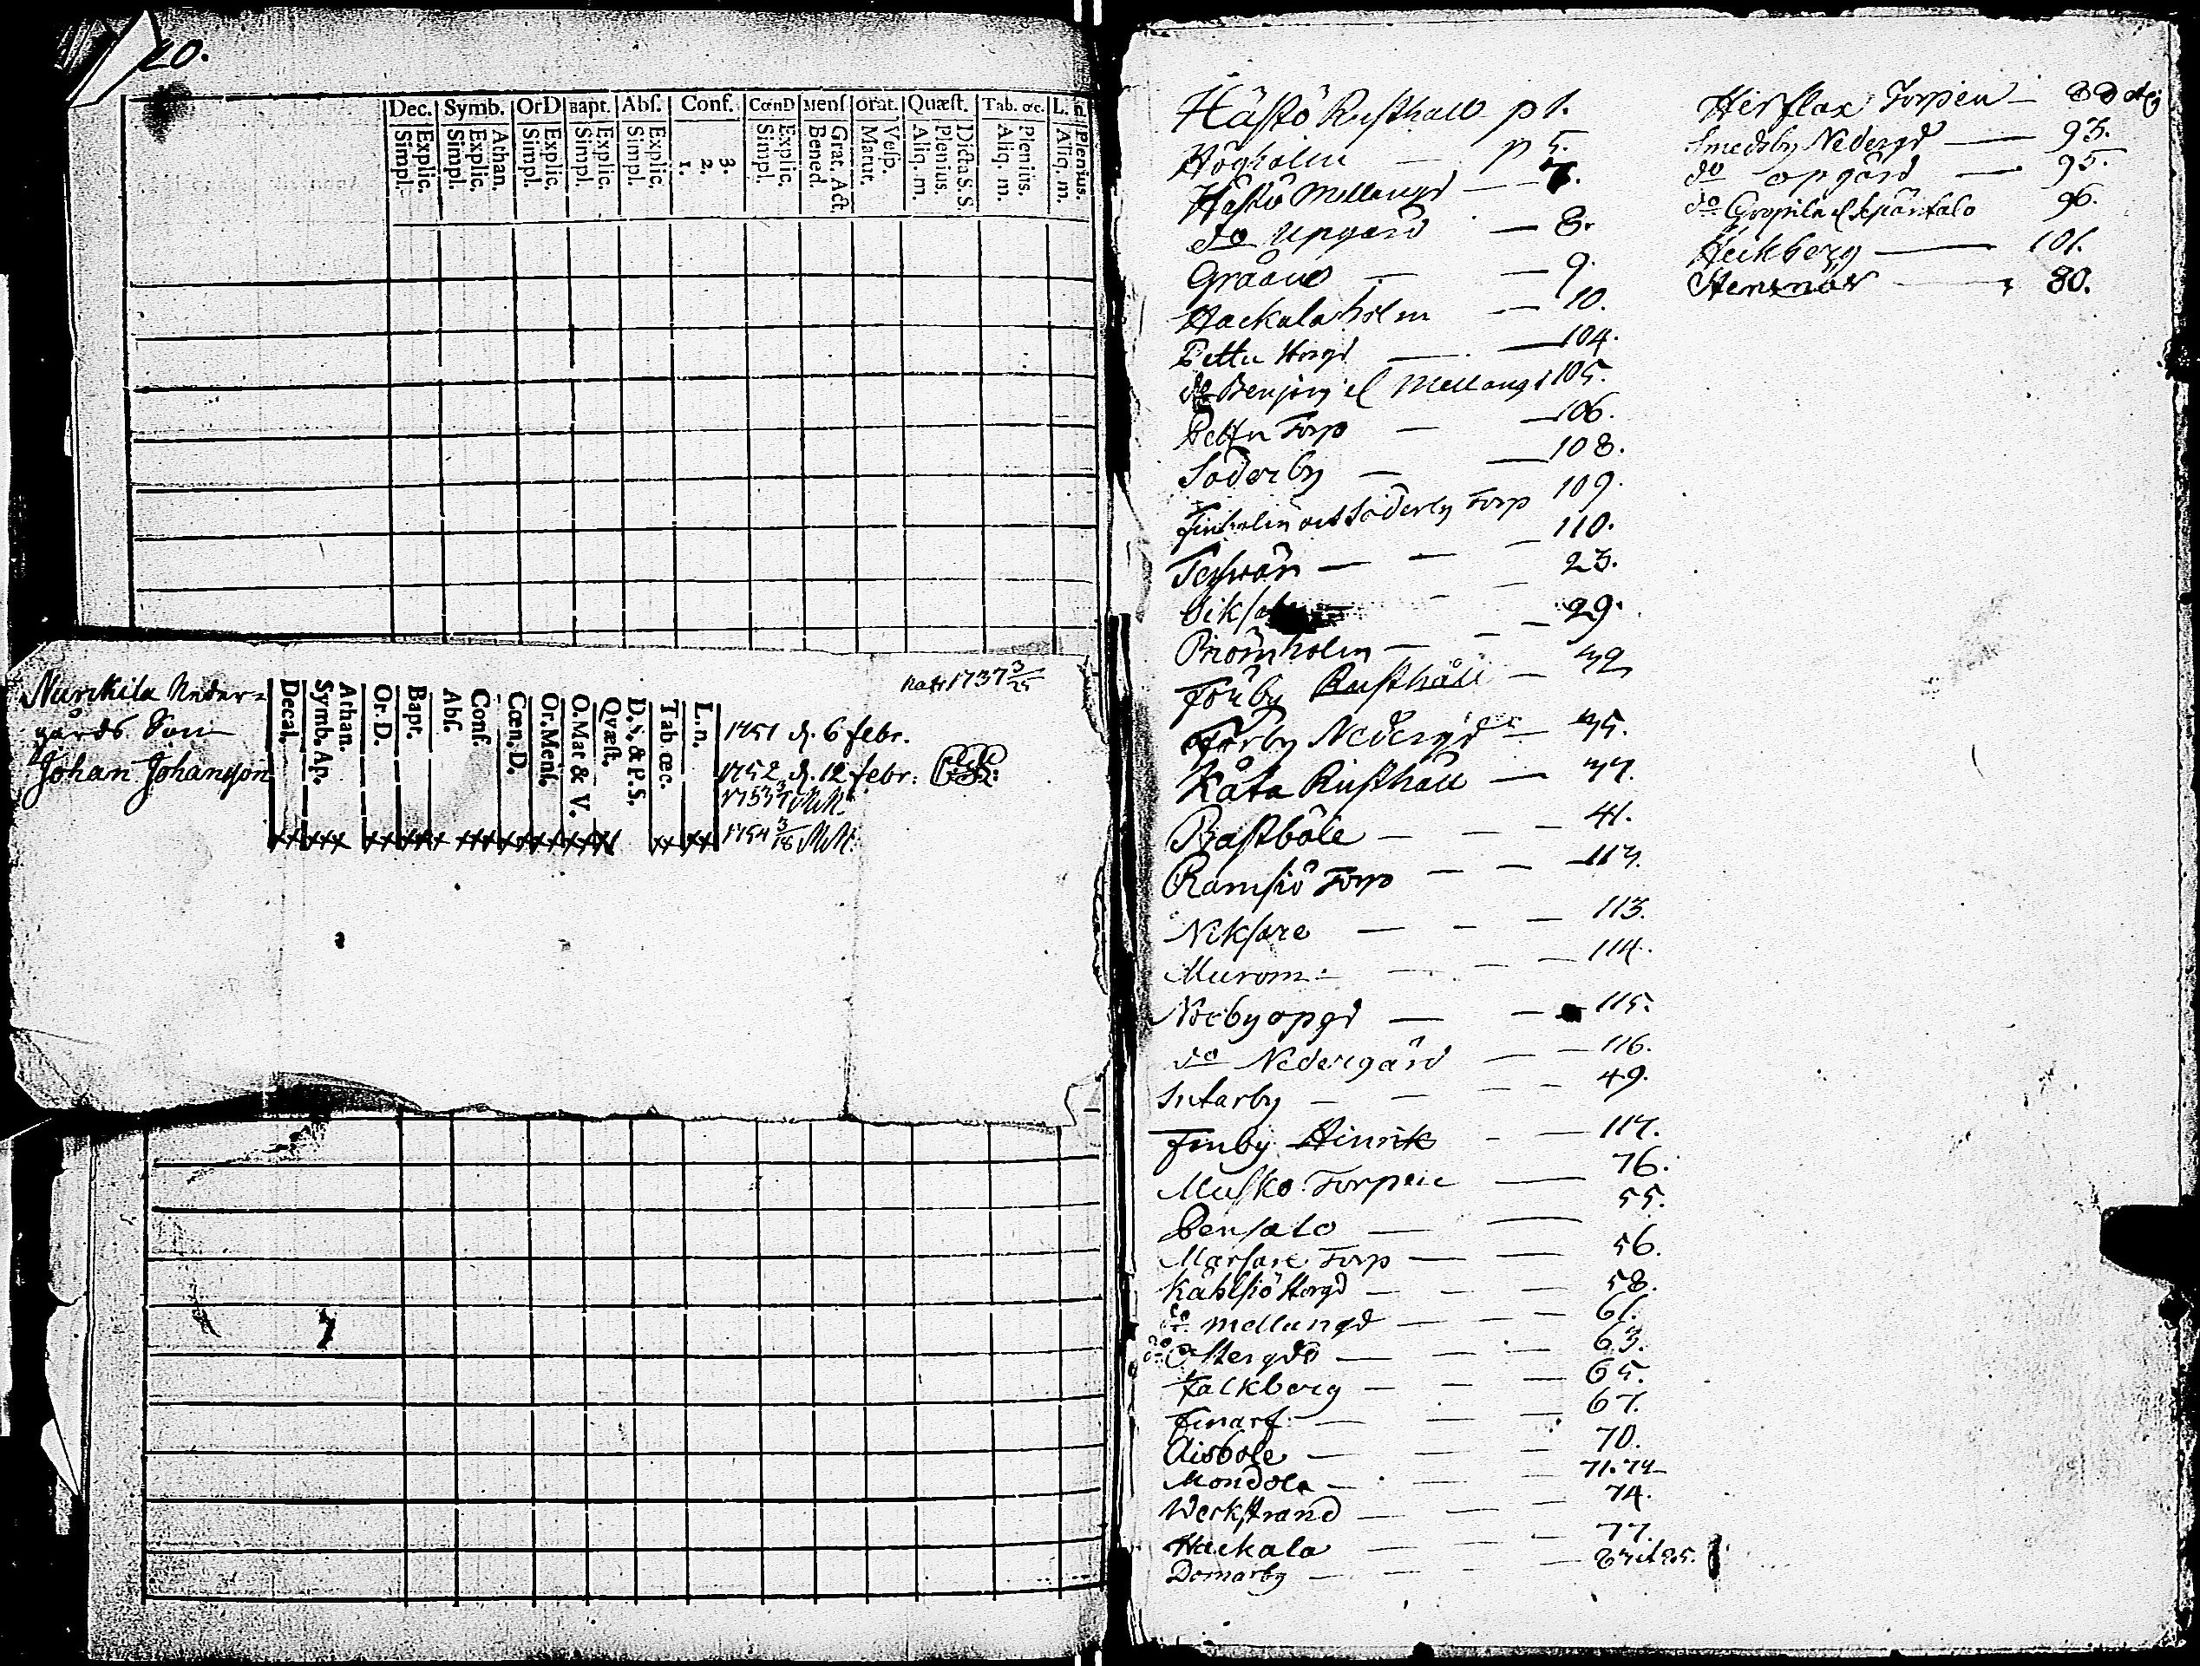 20.
Dec. Symb. OrD Bapt. Abſ. Conf. CœnD Menſ Orat. Quæſt. Tab. œc. L.
Explic. Simpl.
Athan. Explic. Simpl.
Explic. Simpl.
Explic. Simpl.
Explic. Simpl.
3. 2. 1.
Explic. Simpl.
Grat. Act. Bened.
Veſp. Matut.
Dicta S. S. Plenius. Aliq. m.
Plenius. Aliq. m.
Plenius. Aliq. m.
Nunkila Neder=
gårds Son
Johan Johansson
Decal.
Symb. Ap.
Athan.
Or. D.
Bapt.
Abſ.
Conf.
Cœn. D.
Or. Menſ.
O. Mat & V.
Qvæſt.
D. S. & P. S.
Tab œc.
L. n.
nat. 1737 3/25
1751 d. 6 febr.
1752 d. 12 febr:
1753
1754 3/18
Häſtö Ruſthall p 1.
Högholm — p 5.
Häſtö Mellangd — 7.
do Upgård — 8.
Gråaus — 9.
Hackalaholm — 10.
Pettu Norgd — 104.
do Mellangd 105.
Pettu Torp — 106.
Söderby — 108.
Finholm och Söderby Torp 109.
110.
23.
Brömholm — 29.
Förby Ruſthåll — 32
Förby Nedergd — 35.
Kåta Ruſthåll — 37.
Praſtböle — 41.
Ramſiö Torp — 117.
Nikſare — 113.
Murom: — 114.
Norby opgd — 115.
do Nedergård — 116.
Sutarby — 49.
Finby Hinrik — 117.
Muſko Torpen — 76.
Penſalo — 55.
Marſare Torp — 56.
Kåhlſiö Norgd — 58.
do mellangd — 61.
do Öſtergdd — 63.
Falkberg — 65.
Finarf: — 67.
Aisböle — 70.
Mondola — 71. 72
Werkſtrand — 74.
Hackala — 77.
Domarby —
Torpen —
Smedsby Nedergd — 93.
do opgård — 95.
do 96.
Heikberg — 101.
Stensnäs — 80.